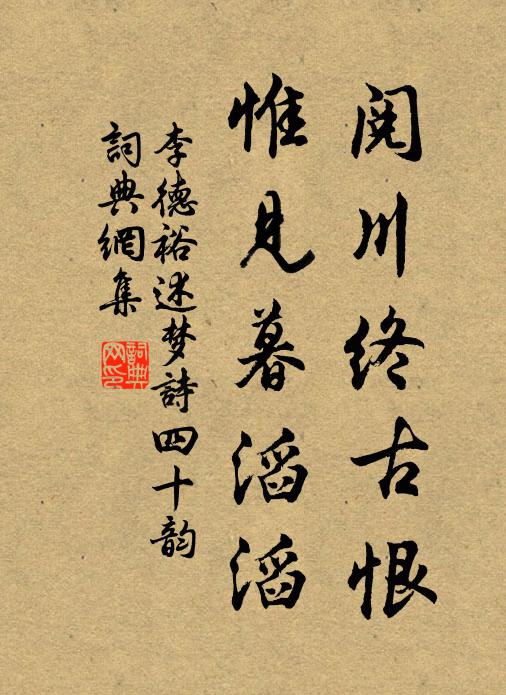 阅川终古恨
惟見暮滔滔
李德裕述梦詩四十韵
詞典網集
詞典网印